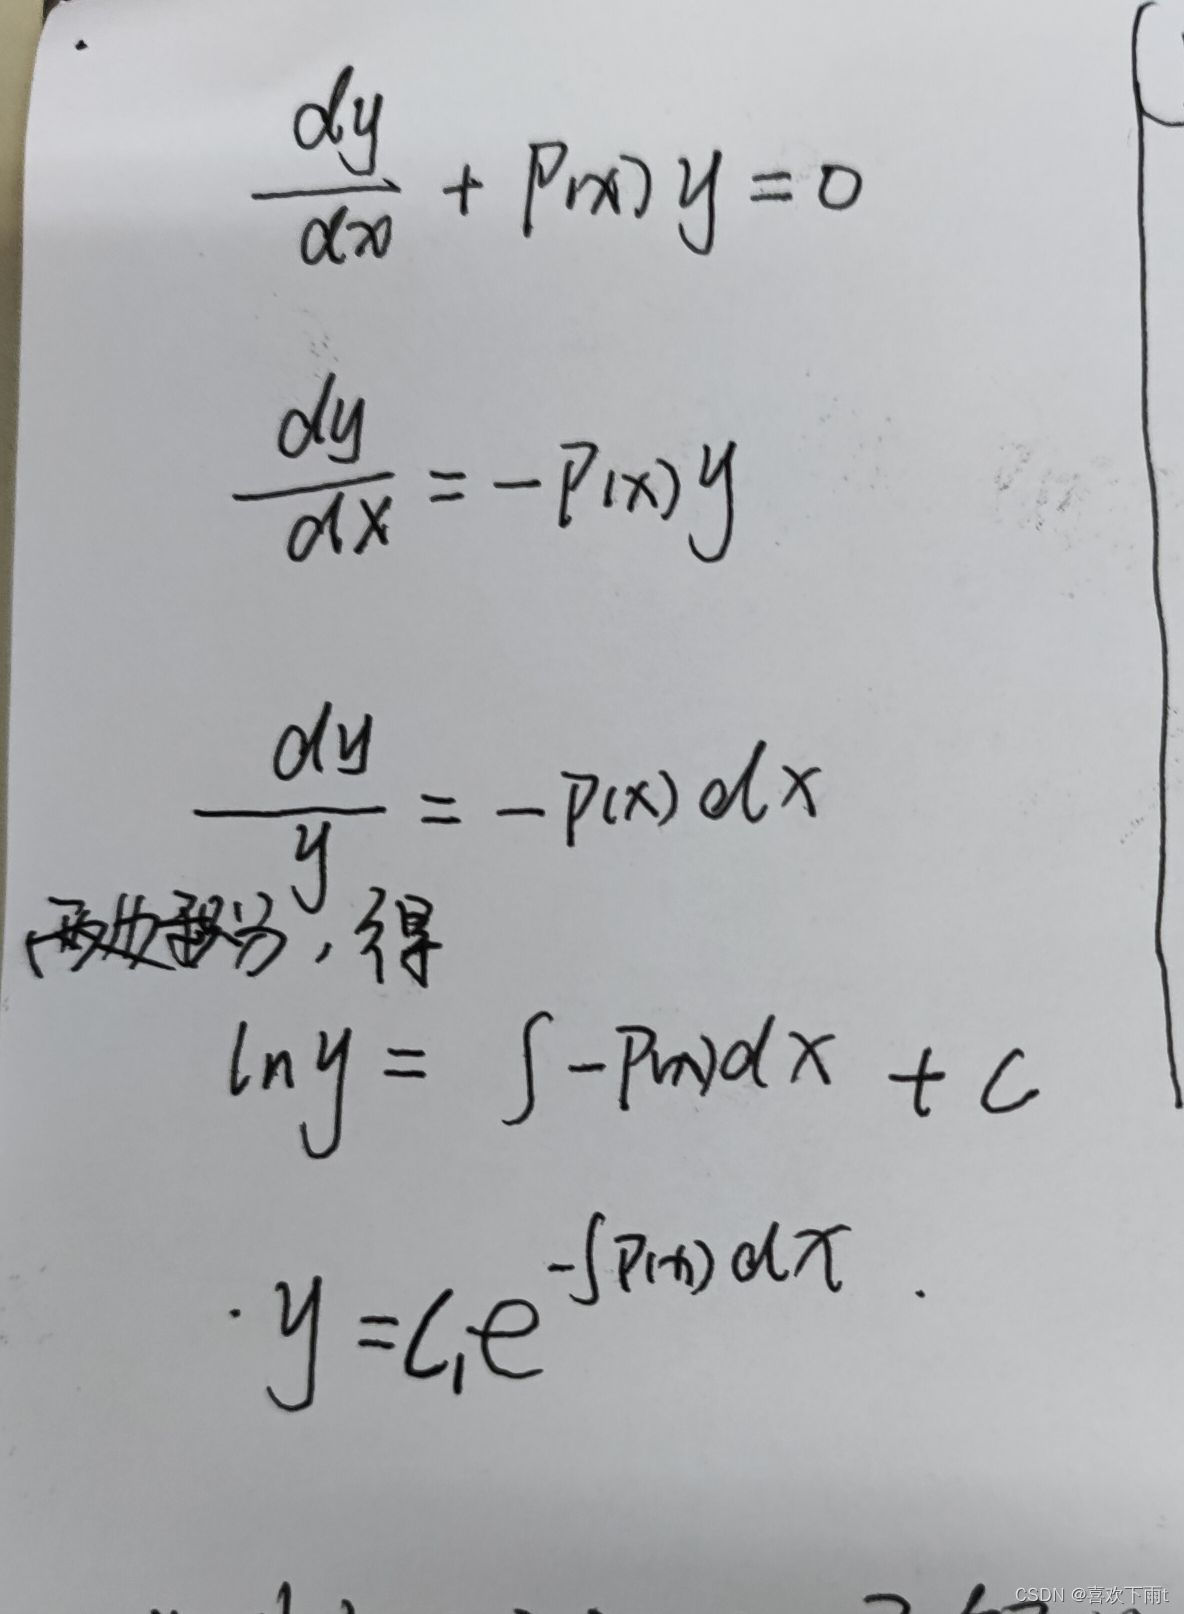 dy/dx + P(x) y = 0
dy/dx = - P(x) y
dy/y = - P(x) dx
两边积分, 得
ln y = ∫ - P(x) dx + C
y = C₁ e^{-∫ P(x) dx}
CSDN @喜欢下雨t